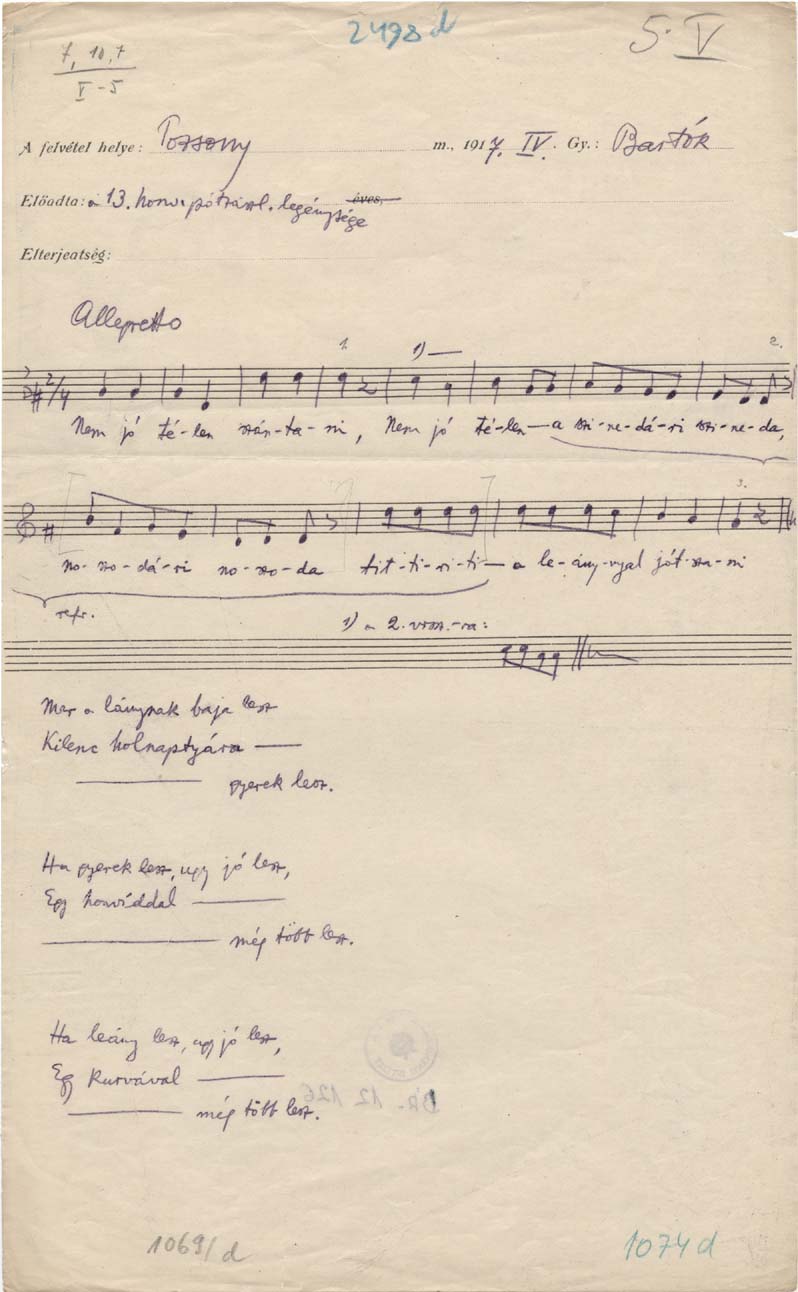 2498d
5. V
7, 10, 7
V-5
A felvétel helye: Pozsony m., 1917. IV. Gy.: Bartók
Előadta: a 13. honv. pótzászl. legénysége éves,
Elterjeatség:
Allegretto
1. 1) 2.
2/4
Nem jó té-len szán-ta-ni, Nem jó té-len — a szi-ne-dá-ri szi-ne-da,
3.
no-zo-dá-ri no-zo-da tit-ti-ri-ti — a le-ány-nyal ját-sza-ni
refr.
1) a 2. vrsz.-ra:
Mer a lánynak baja lesz
Kilenc holnaptyára —
— gyerek lesz.
Ha gyerek lesz, ugy jó lesz,
Egy honvéddal —
— még több lesz.
Ha leány lesz, ugy jó lesz,
Egy kurvával —
— még több lesz.
BR. 12 126
1069/d
1074d